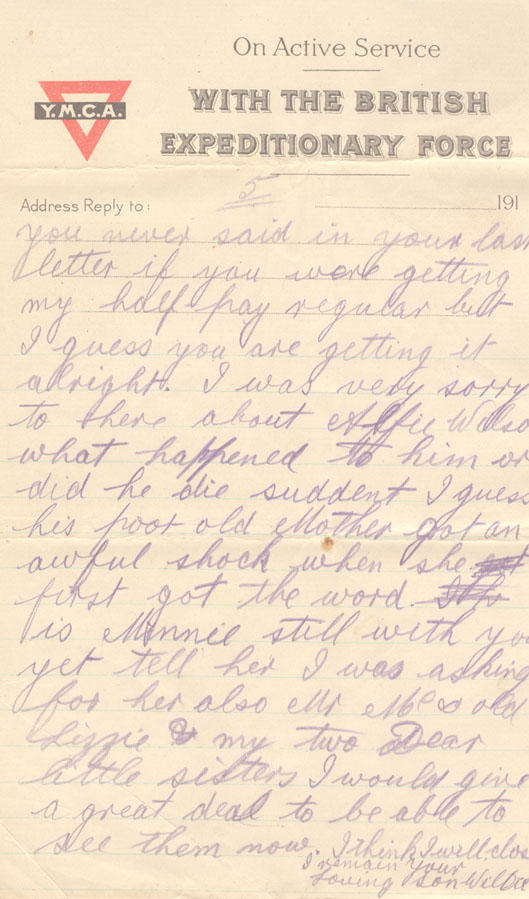 On Active Service
WITH THE BRITISH
EXPEDITIONARY FORCE
Y.M.C.A.
5
Address Reply to: 191
you never said in your last
letter if you were getting
my half pay regular but
I guess you are getting it
alright. I was very sorry
to here about Alfie Wilso
what happened to him or
did he die suddent I guess
his poor old Mother got an
awful shock when she got
first got the word. Its
is Minnie still with you
yet tell her I was asking
for her also Mr Mc & old
Lizzie & my two Dear
little sisters I would give
a great deal to be able to
see them now. I think I will clos
I remain your
loving son Willie